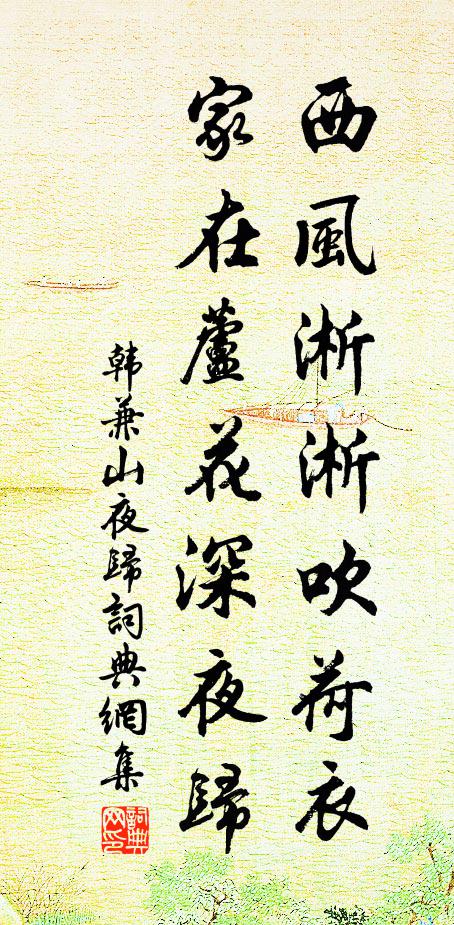 西風淅淅吹荷衣
家在蘆花深夜歸
韩兼山夜歸詞典網集
詞典網印